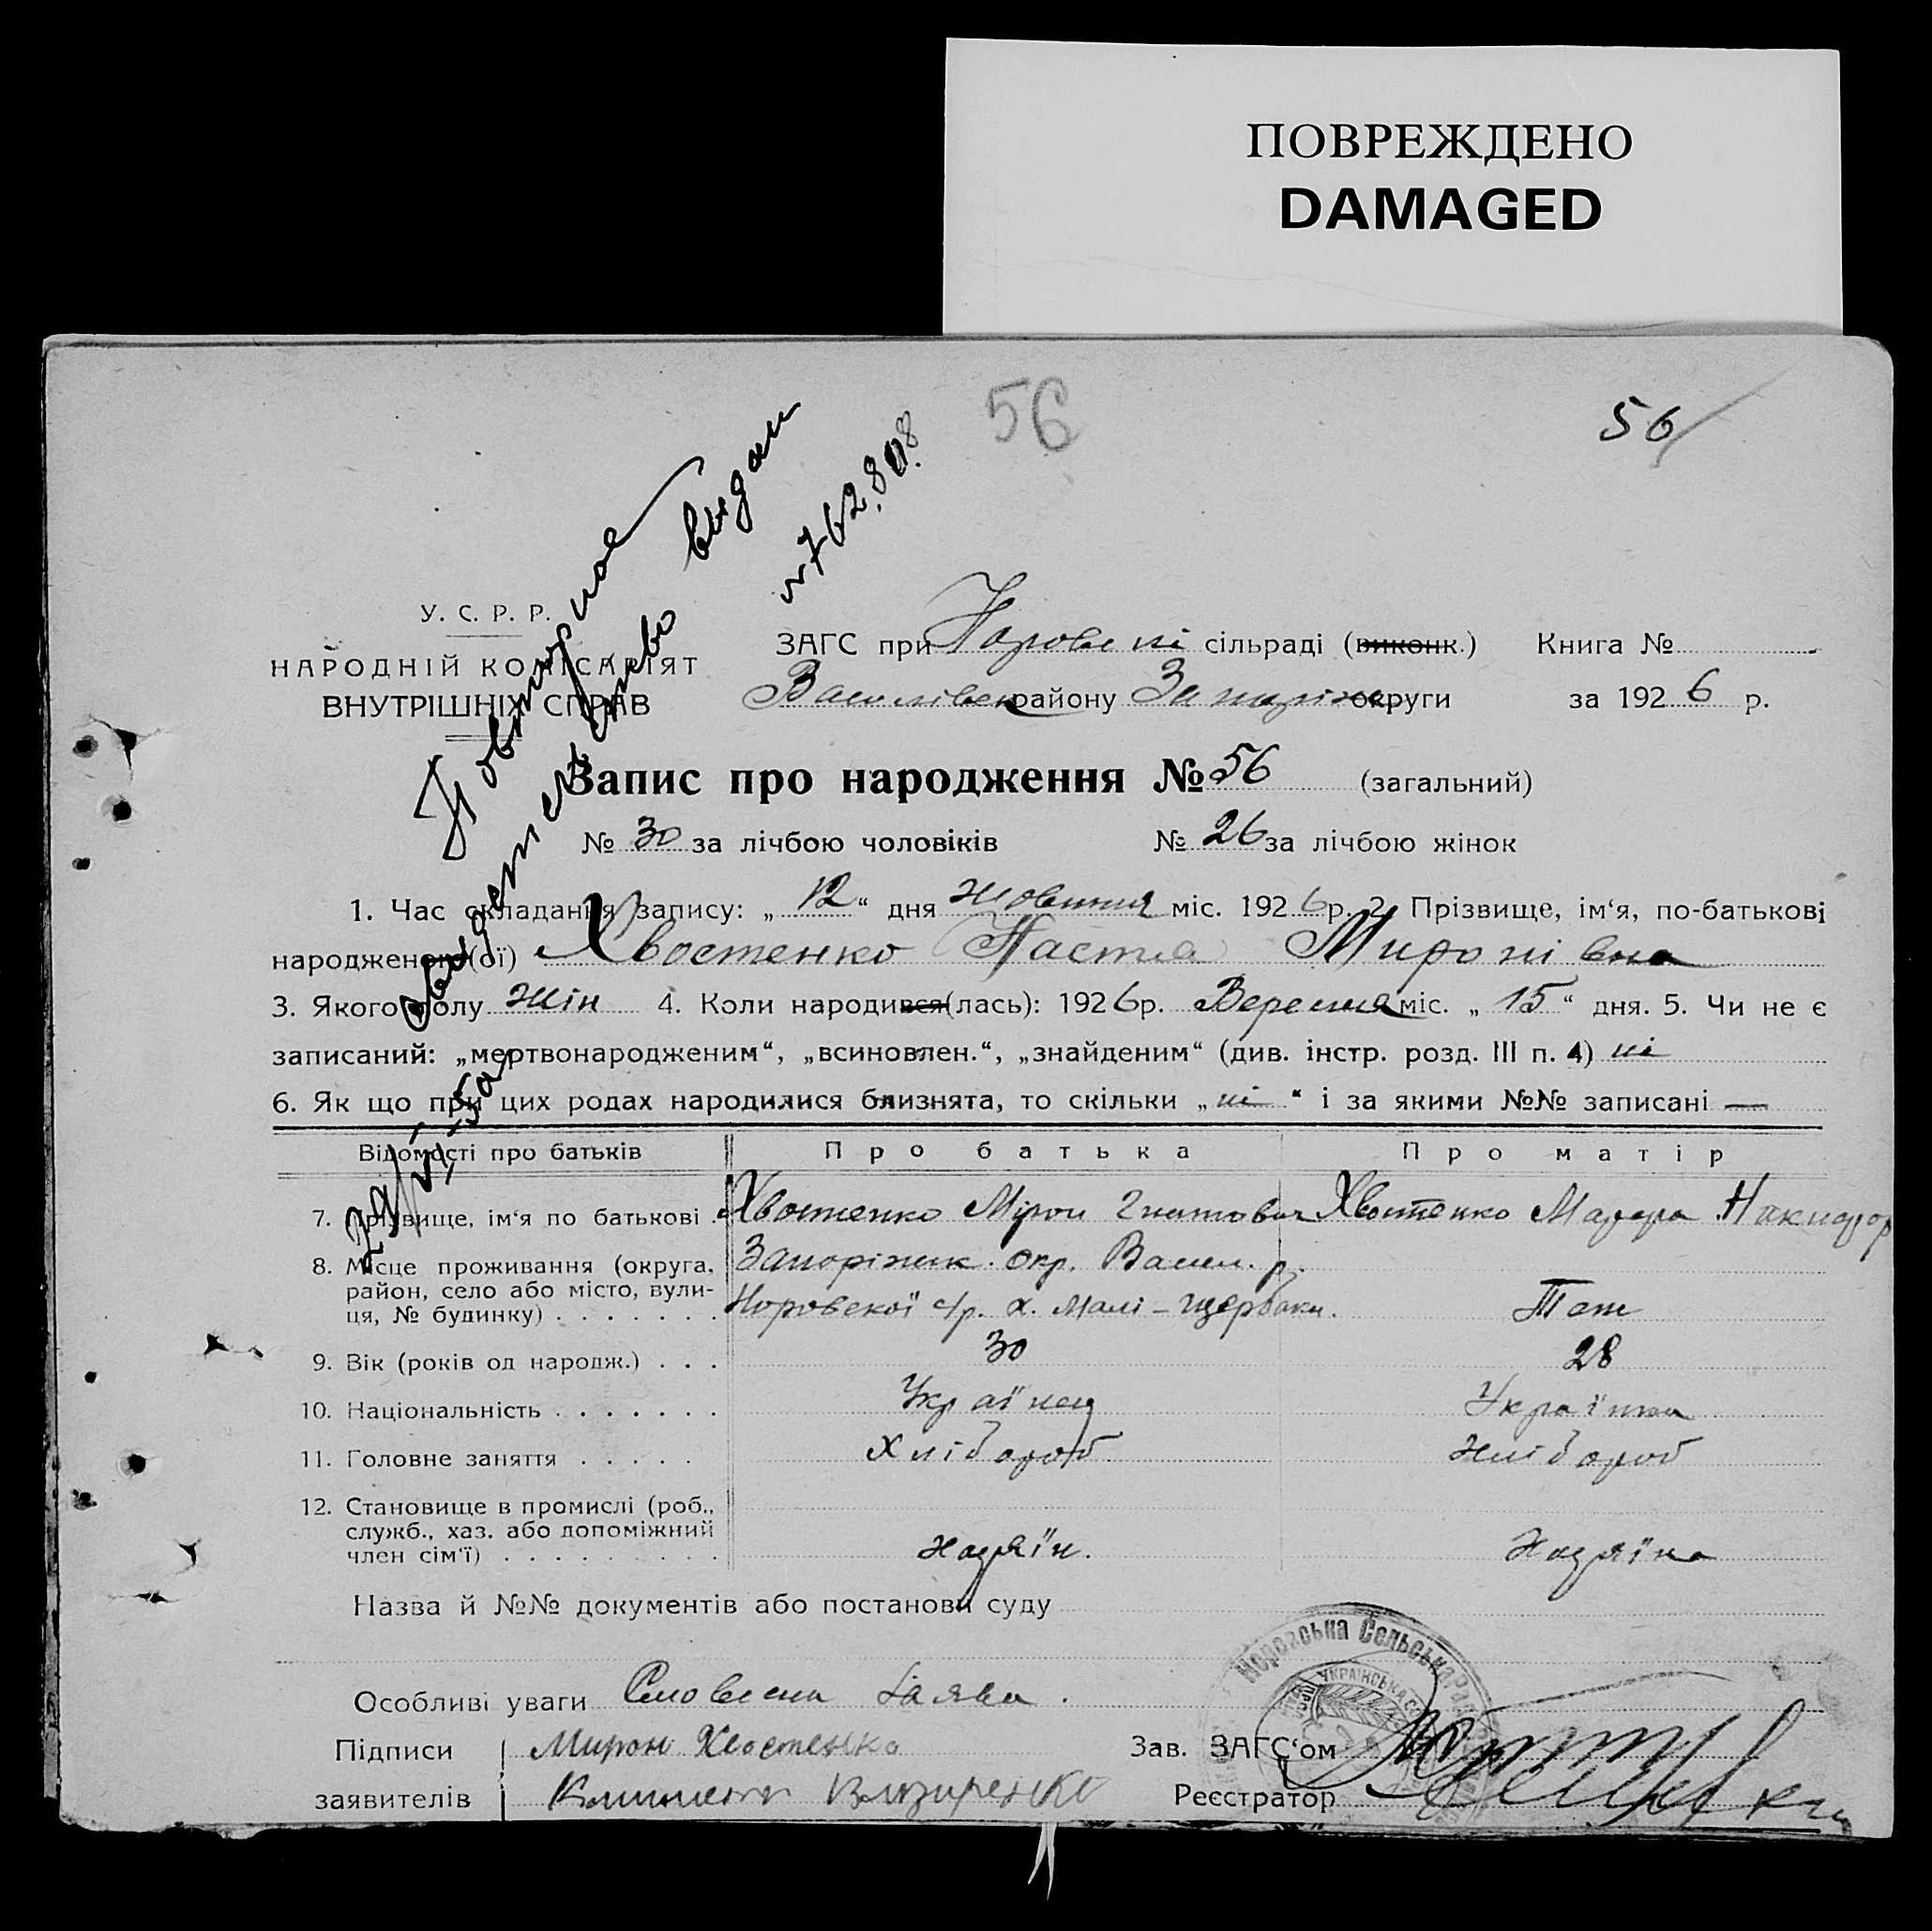 ПОВРЕЖДЕНО
DAMAGED
56
56
Повторное
свидетельство выдан
№ 762808
У. С. Р. Р.
НАРОДНІЙ КОМІСАРІЯТ
ВНУТРІШНІХ СПРАВ
ЗАГС при сільраді (виконк.) Книга №
Василівськ району Запоріж округи за 1926 р.
Запис про народження № 56 (загальний)
№ 30 за лічбою чоловіків № 26 за лічбою жінок
1. Час складання запису: „ 12 “ дня Жовтня міс. 1926 р. 2. Прізвище, ім‘я, по-батькові
народженого(ої) Хвостенко Настя Миронівна
3. Якого полу жін 4. Коли народився(лась): 1926 р. Вересня міс. „ 15 “ дня. 5. Чи не є
записаний: „мертвонародженим“, „всиновлен.“, „знайденим“ (див. інстр. розд. III п. 4) ні
6. Як що при цих родах народилися близнята, то скільки „ ні “ і за якими №№ записані —
Відомості про батьків Про батька Про матір
7. Прізвище, ім‘я по батькові . Хвостенко Мірон Гнатович Хвостенко Марфа Никифор
8. Місце проживання (округа, район, село або місто, вулиця, № будинку) . . . . . . .
Запоріжж. окр. Васил. р.
Норовской с/р. х. Малі-Щербаки. Там
9. Вік (років од народж.) . . . 30 28
10. Національність . . . . . . . Українец Українка
11. Головне заняття . . . . . Хлібороб Хлібороб
12. Становище в промислі (роб., служб., хаз. або допоміжний член сім‘ї) . . . . . . . . .
хазяїн. Хазяїка
Назва й №№ документів або постанови суду
Норовська Сельська Рада
УКРАЇНСЬКА
Особливі уваги Словесна заява.
Підписи Мирон Хвостенко Зав. ЗАГС‘ом
заявителів Реєстратор